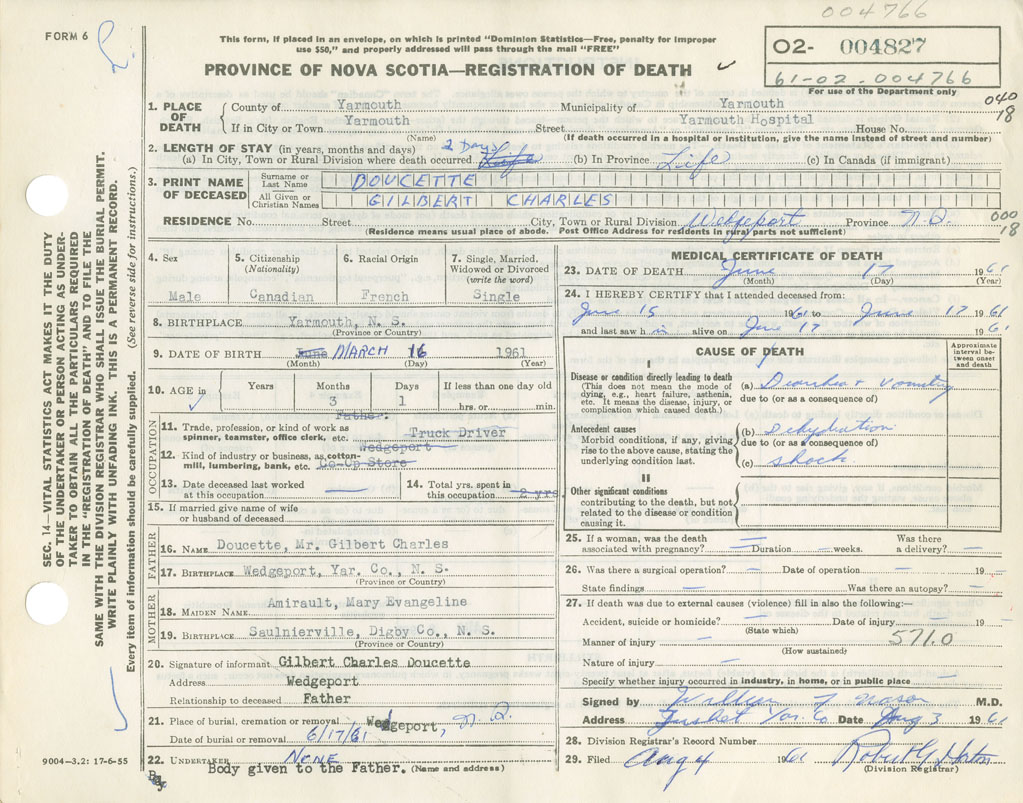 004766
FORM 6
This form, if placed in an envelope, on which is printed "Dominion Statistics—Free, penalty for improper
use $50," and properly addressed will pass through the mail "FREE"
PROVINCE OF NOVA SCOTIA—REGISTRATION OF DEATH
02- 004827
61-02-004766
For use of the Department only
040
18
1. PLACE OF DEATH County of Yarmouth Municipality of Yarmouth
If in City or Town Yarmouth Street Yarmouth Hospital House No.
(Name) (If death occurred in a hospital or institution, give the name instead of street and number)
2. LENGTH OF STAY (in years, months and days) 2 Days
(a) In City, Town or Rural Division where death occurred Life (b) In Province Life (c) In Canada (if immigrant)
3. PRINT NAME OF DECEASED
Surname or Last Name DOUCETTE
All Given or Christian Names GILBERT CHARLES
RESIDENCE No. Street City, Town or Rural Division Wedgeport Province N.S.
(Residence means usual place of abode. Post Office Address for residents in rural parts not sufficient)
000
18
4. Sex
Male
5. Citizenship
(Nationality)
Canadian
6. Racial Origin
French
7. Single, Married,
Widowed or Divorced
(write the word)
Single
8. BIRTHPLACE Yarmouth, N. S.
(Province or Country)
9. DATE OF BIRTH June MARCH 16 1961
(Month) (Day) (Year)
10. AGE in ✓
Years Months Days If less than one day old
3 1 hrs. or min.
OCCUPATION
Father:
11. Trade, profession, or kind of work as
spinner, teamster, office clerk, etc. Truck Driver
Wedgeport
12. Kind of industry or business, as cotton-
mill, lumbering, bank, etc. Co-Op Store
13. Date deceased last worked
at this occupation
14. Total yrs. spent in
this occupation 2 yrs
15. If married give name of wife
or husband of deceased
FATHER
16. NAME Doucette, Mr. Gilbert Charles
17. BIRTHPLACE Wedgeport, Yar. Co., N. S.
(Province or Country)
MOTHER
18. MAIDEN NAME Amirault, Mary Evangeline
19. BIRTHPLACE Saulnierville, Digby Co., N. S.
(Province or Country)
20. Signature of informant Gilbert Charles Doucette
Address Wedgeport
Relationship to deceased Father
21. Place of burial, cremation or removal Wedgeport, N.S.
Date of burial or removal 6/17/61
22. UNDERTAKER NONE
Body given to the Father. (Name and address)
MEDICAL CERTIFICATE OF DEATH
23. DATE OF DEATH June 17 1961
(Month) (Day) (Year)
24. I HEREBY CERTIFY that I attended deceased from:
June 15 1961 to June 17 1961
and last saw h im alive on June 17 1961
CAUSE OF DEATH
Approximate
interval be-
tween onset
and death
I
Disease or condition directly leading to death
(This does not mean the mode of
dying, e.g., heart failure, asthenia,
etc. It means the disease, injury, or
complication which caused death.)
(a) Diarrhea + Vomiting
due to (or as a consequence of)
Antecedent causes
Morbid conditions, if any, giving
rise to the above cause, stating the
underlying condition last.
(b) Dehydration
due to (or as a consequence of)
(c) shock
II
Other significant conditions
contributing to the death, but not
related to the disease or condition
causing it.
25. If a woman, was the death Was there
associated with pregnancy? Duration weeks. a delivery?
26. Was there a surgical operation? Date of operation 19
State findings Was there an autopsy?
27. If death was due to external causes (violence) fill in also the following:—
Accident, suicide or homicide? Date of injury 19
(State which)
Manner of injury 571.0
(How sustained)
Nature of injury
Specify whether injury occurred in industry, in home, or in public place
Signed by William F Mason M.D.
Address Tusket Yar. Co Date Aug 3 1961
28. Division Registrar's Record Number
29. Filed Aug 4 1961 Robert G Horton
(Division Registrar)
SEC. 14—VITAL STATISTICS ACT MAKES IT THE DUTY
OF THE UNDERTAKER OR PERSON ACTING AS UNDER-
TAKER TO OBTAIN ALL THE PARTICULARS REQUIRED
IN THE "REGISTRATION OF DEATH" AND TO FILE THE
SAME WITH THE DIVISION REGISTRAR WHO SHALL ISSUE THE BURIAL PERMIT.
WRITE PLAINLY WITH UNFADING INK. THIS IS A PERMANENT RECORD.
Every item of information should be carefully supplied. (See reverse side for instructions.)
9004-3.2: 17-6-55